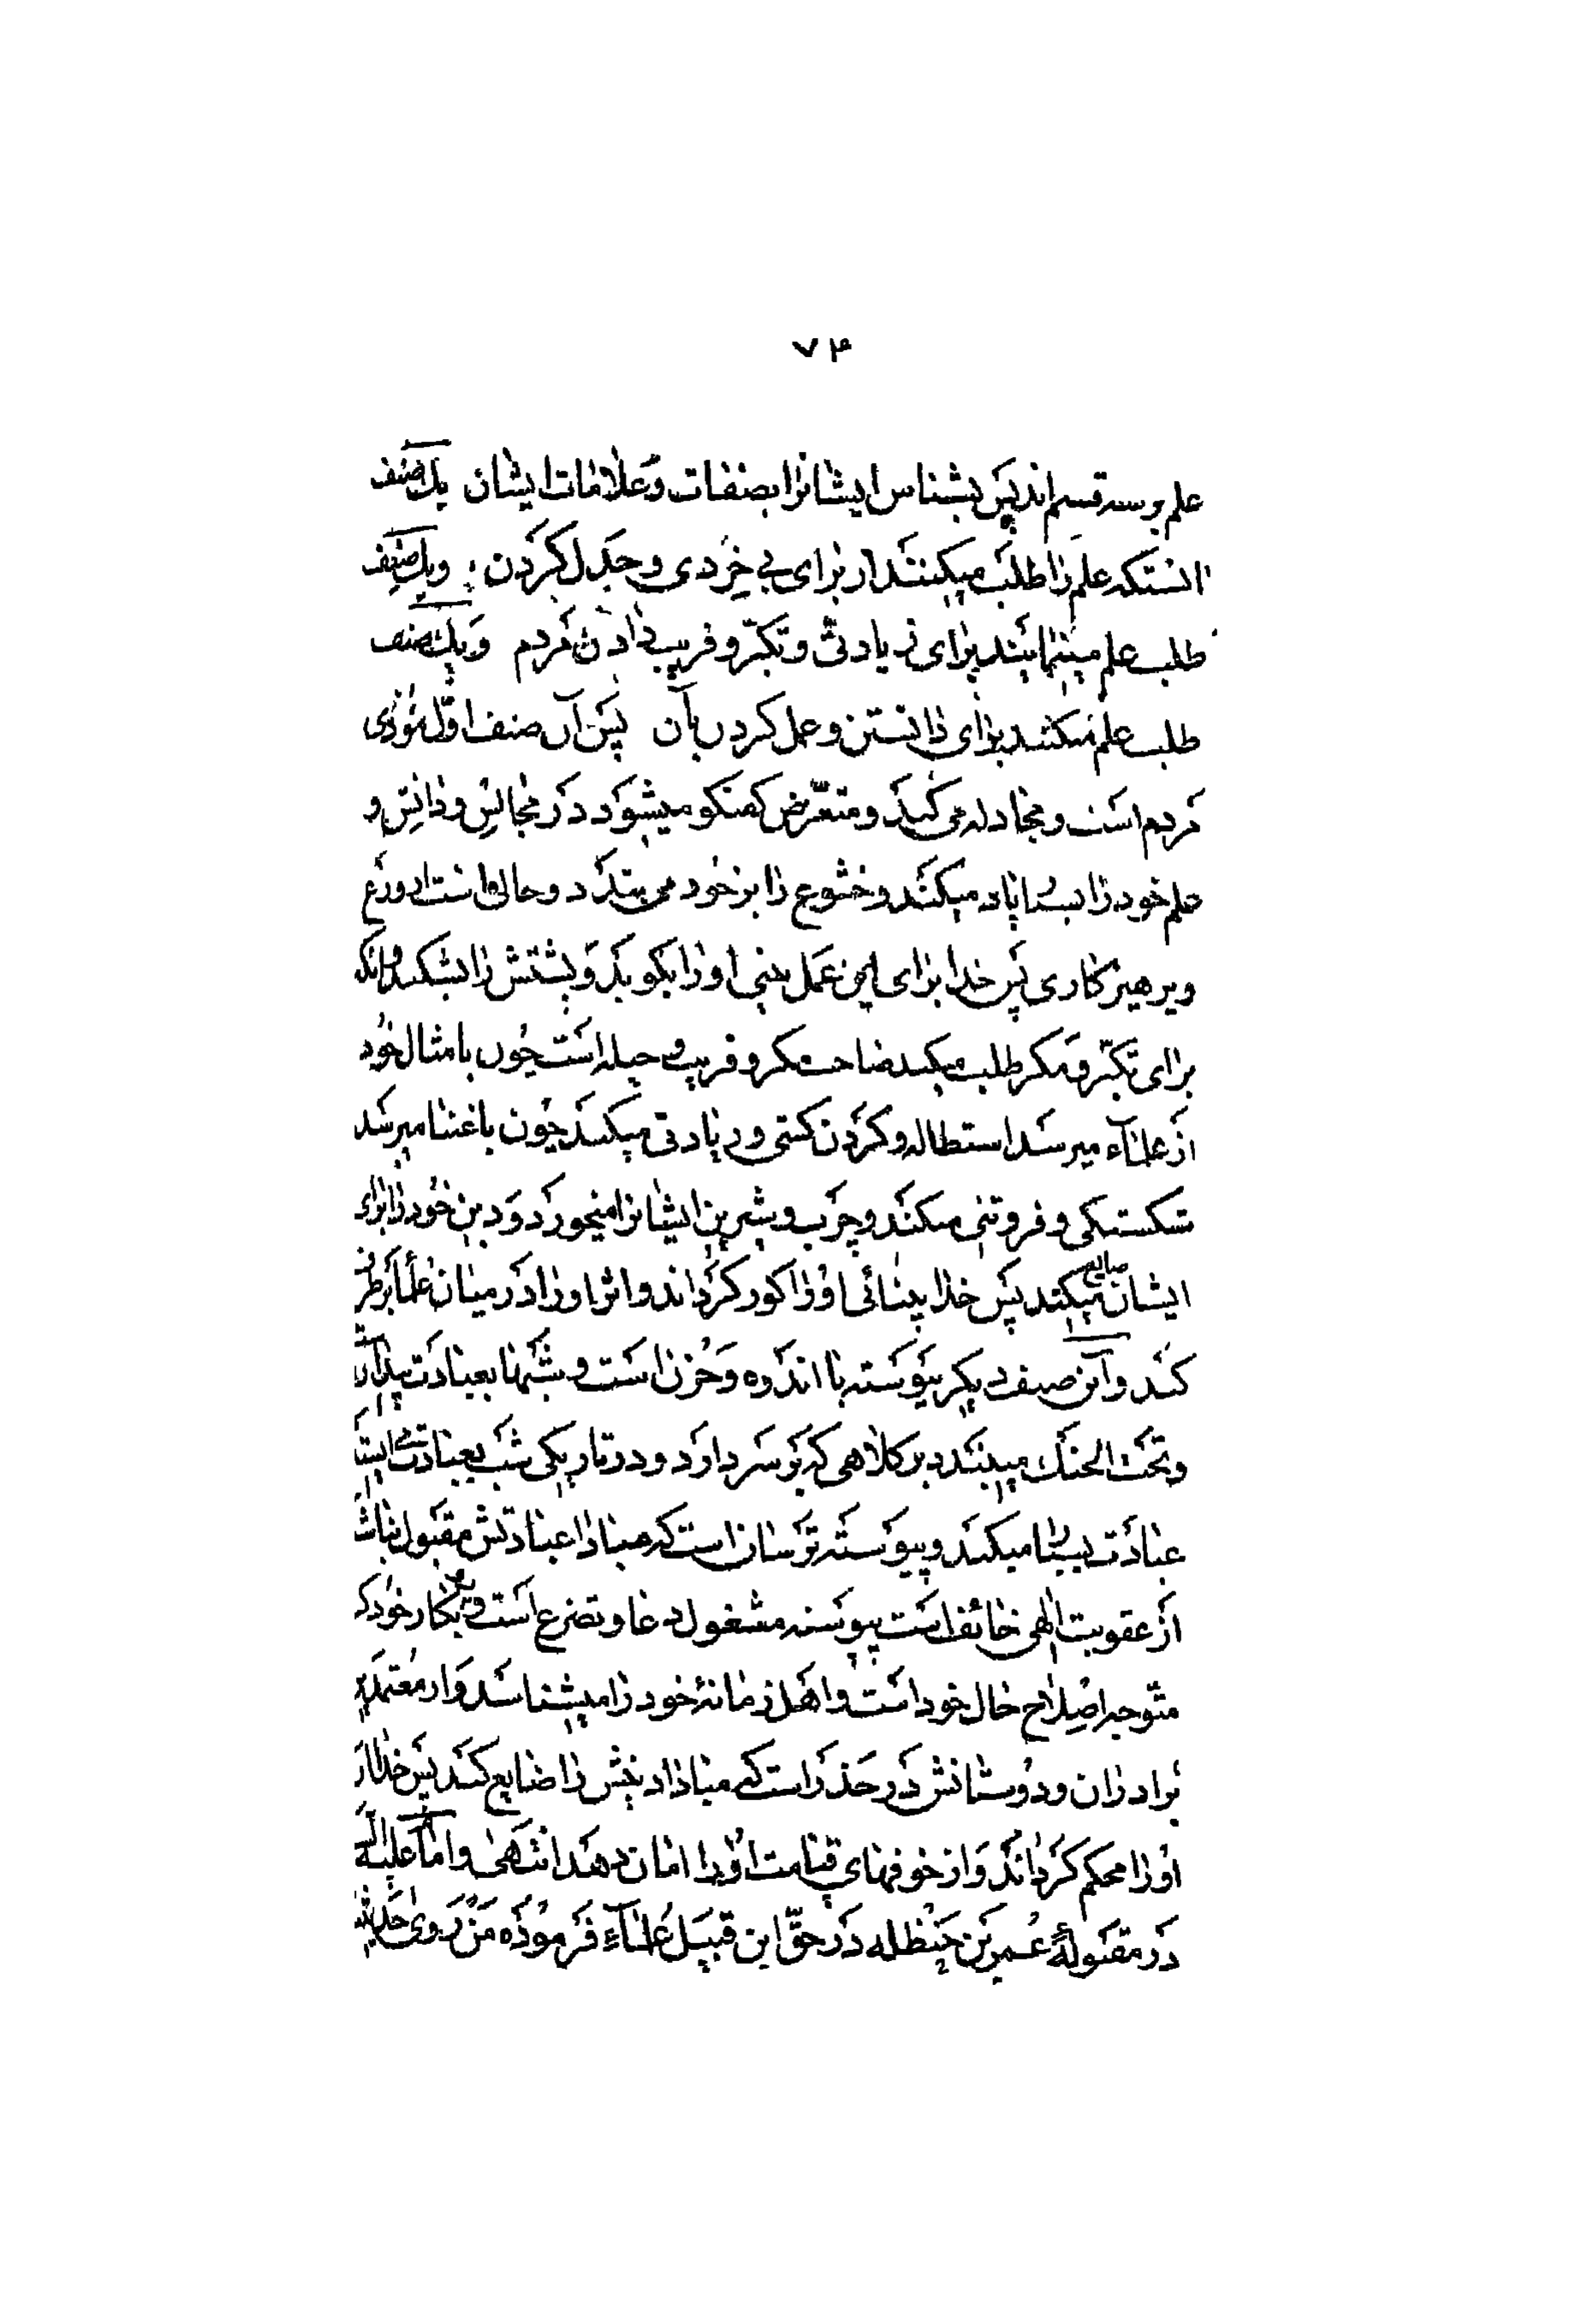 ۷۳
علم بر سه قسم‌اند پس بشناس ایشانرا بصفات و علامات ایشان یک صنف
آنستکه علم را طلب میکنند از برای بی خردی و جدل کردن و یک صنف
طلب علم مینمایند برای زیادتی و تکبّر و فریب دادن مردم و یک صنف
طلب علم میکنند برای دانستن و عمل کردن بآن پس آن صنف اوّل موذی
مردم است و مجادله می کند و متعرّض گفتگو میشود در مجالس و دانش و
علم خود را بسیار یاد میکند و خشوع را بر خود می بندد و خالی است از ورع
و پرهیزکاری پس خدا برای این عمل بینی او را بکوبد و پشتش را بشکند و آنکه
برای تکبّر و مکر طلب میکند صاحب مکر و فریب و حیله است چون بامثال خود
از علماء میرسد استطاله و گردن کشی و زیادتی میکند چون باغنیا میرسد
شکستگی و فروتنی میکند و چرب و شیرین ایشانرا میخورد و دین خود را برای
ایشان ضایع میکند پس خدا بینائی او را کور گرداند و اثر او را در میان علما برطرف
کند و آن صنف دیگر پیوسته با اندوه و حزن است و شبها بعبادت بیدار
و تحت الحنک میبندد بر کلاهی که بر سر دارد و در تاریکی شب بعبادت
عبادت بسیار میکند و پیوسته ترسان است که مبادا عبادتش مقبول نباشد
از عقوبت الهی خائف است پیوسته مشغول دعا و تضرع است و بکار خود
متوجه اصلاح حال خود است و اهل زمانهٔ خود را میشناسد و از معتمدترین
برادران و دوستانش در حذر است که مبادا دینش را ضایع کند پس خدا
او را محکم گرداند و از خوفهای قیامت او را امان دهد انتهی و امام علیه السلام
در مقبولهٔ عمر بن حنظله در حقّ این قبیل علماء فرموده من روی حدیثنا